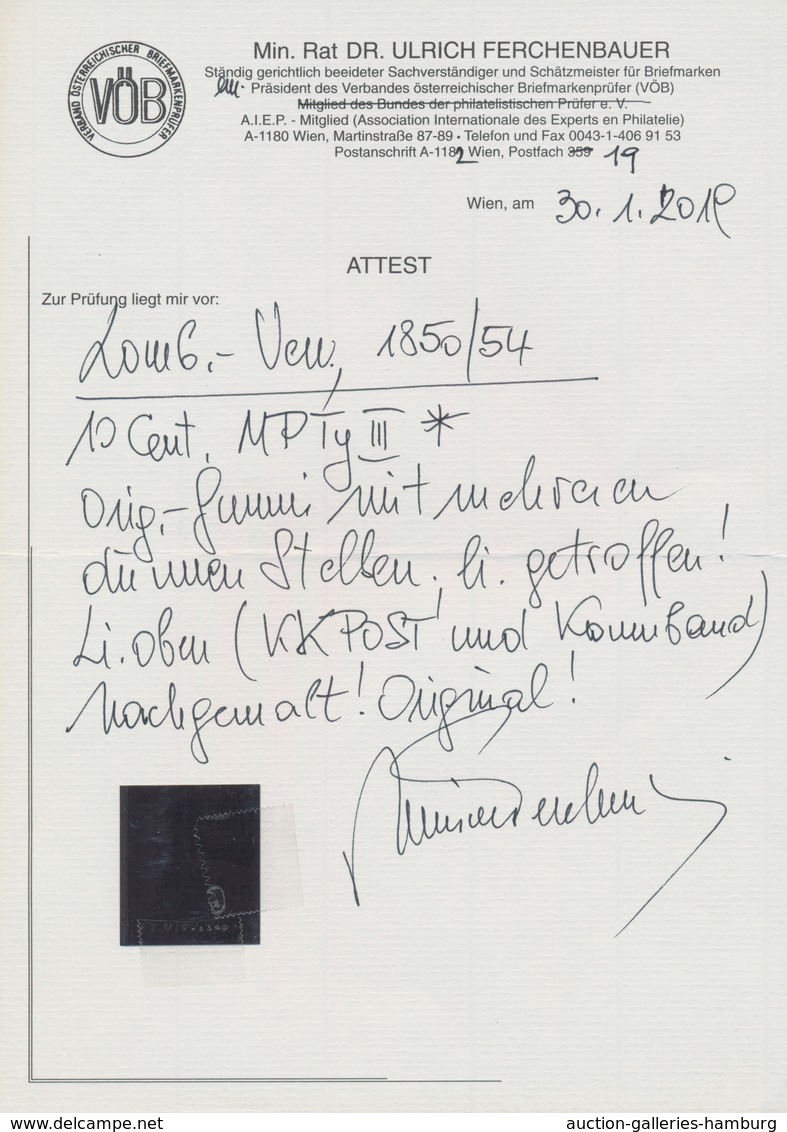 VERBAND ÖSTERREICHISCHER BRIEFMARKENPRÜFER
VÖB
Min. Rat DR. ULRICH FERCHENBAUER
Ständig gerichtlich beeideter Sachverständiger und Schätzmeister für Briefmarken
em. Präsident des Verbandes österreichischer Briefmarkenprüfer (VÖB)
Mitglied des Bundes der philatelistischen Prüfer e. V.
A.I.E.P. - Mitglied (Association Internationale des Experts en Philatelie)
A-1180 Wien, Martinstraße 87-89 • Telefon und Fax 0043-1-406 91 53
Postanschrift A-1182 Wien, Postfach 359 19
Wien, am 30. 1. 201
ATTEST
Zur Prüfung liegt mir vor:
Lomb.- Ven, 1850/54
10 Cent, MP Ty III *
Orig.- Gummi mit mehreren
dünnen Stellen. li. getroffen!
Li. oben (KKPOST und Kronband)
Nachgemalt! Original!
www.delcampe.net
auction-galleries-hamburg